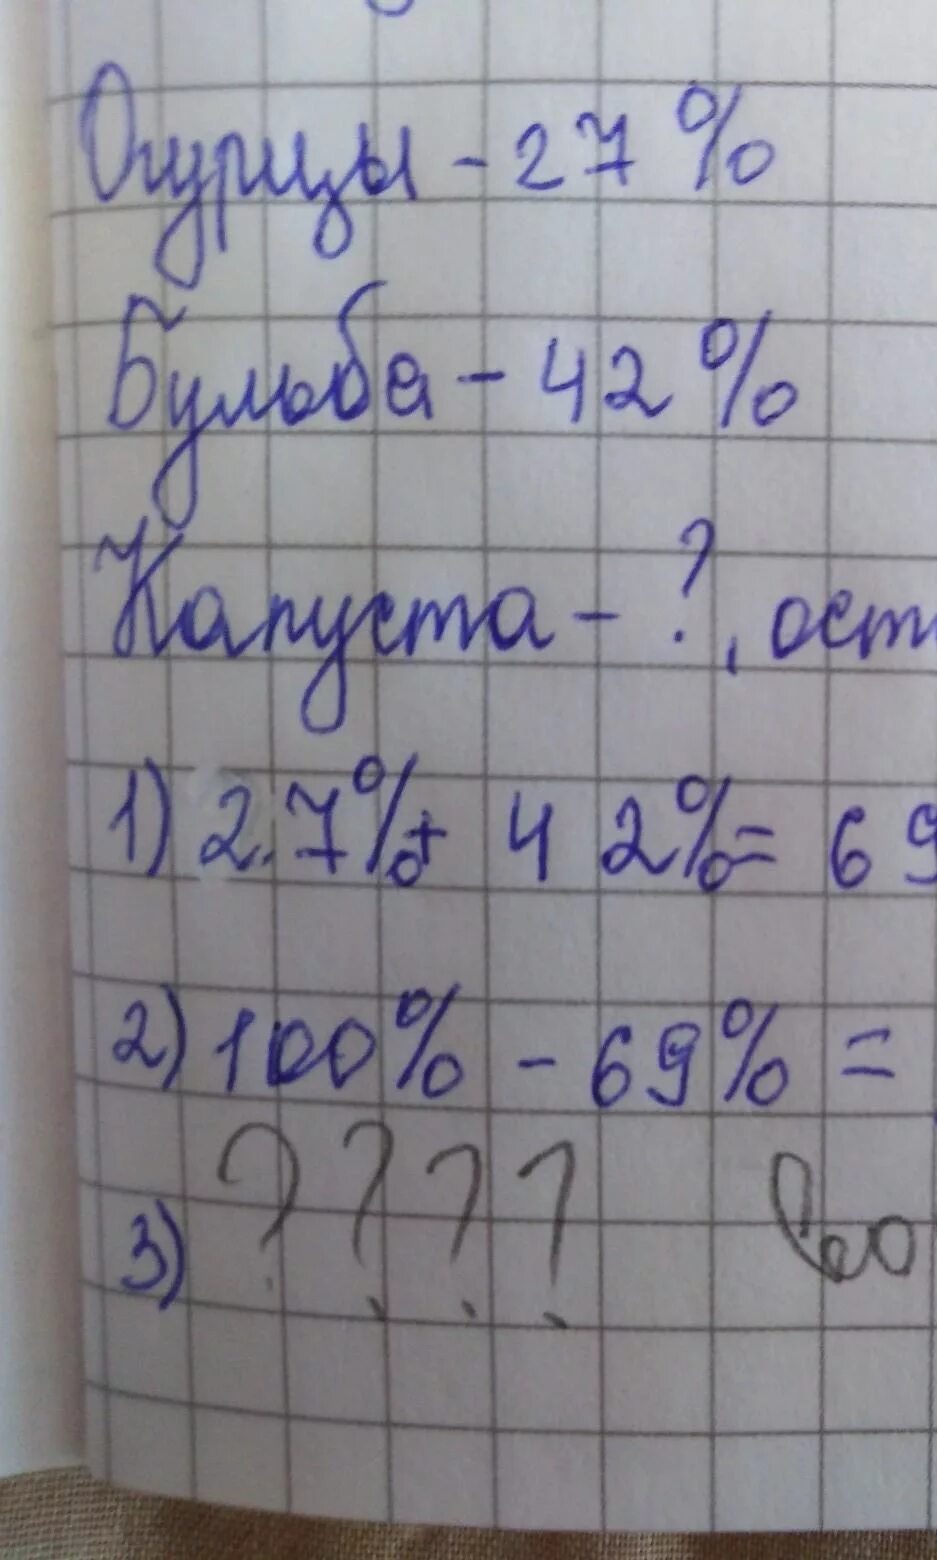 Огурцы - 27%
Бульба - 42%
Капуста - ?, ост
1) 27% + 42% = 69
2) 100% - 69% =
3) ? ? ? ?